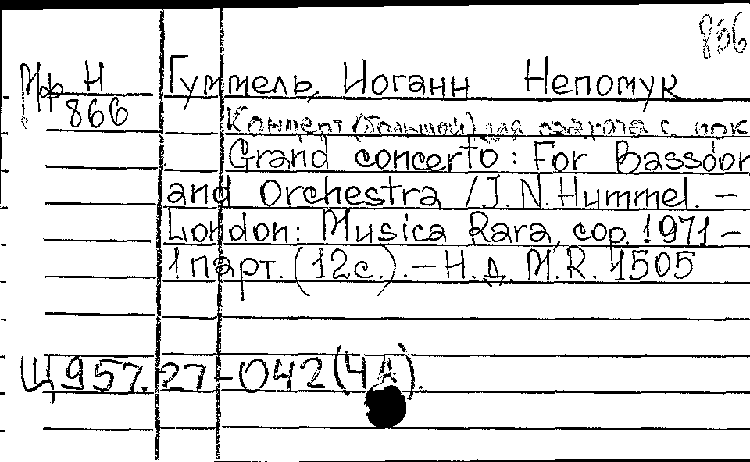 866
Мф Н Гуммель, Иоганн Непомук
866
Концерт (большой) для фагота с
Grand concerto: For Bassoon
and Orchestra / J. N. Hummel. –
London: Musica Rara, cop. 1971 –
1 парт. (12 с.). – Н. д. M.R. 1505
Щ957.27-042(4А)